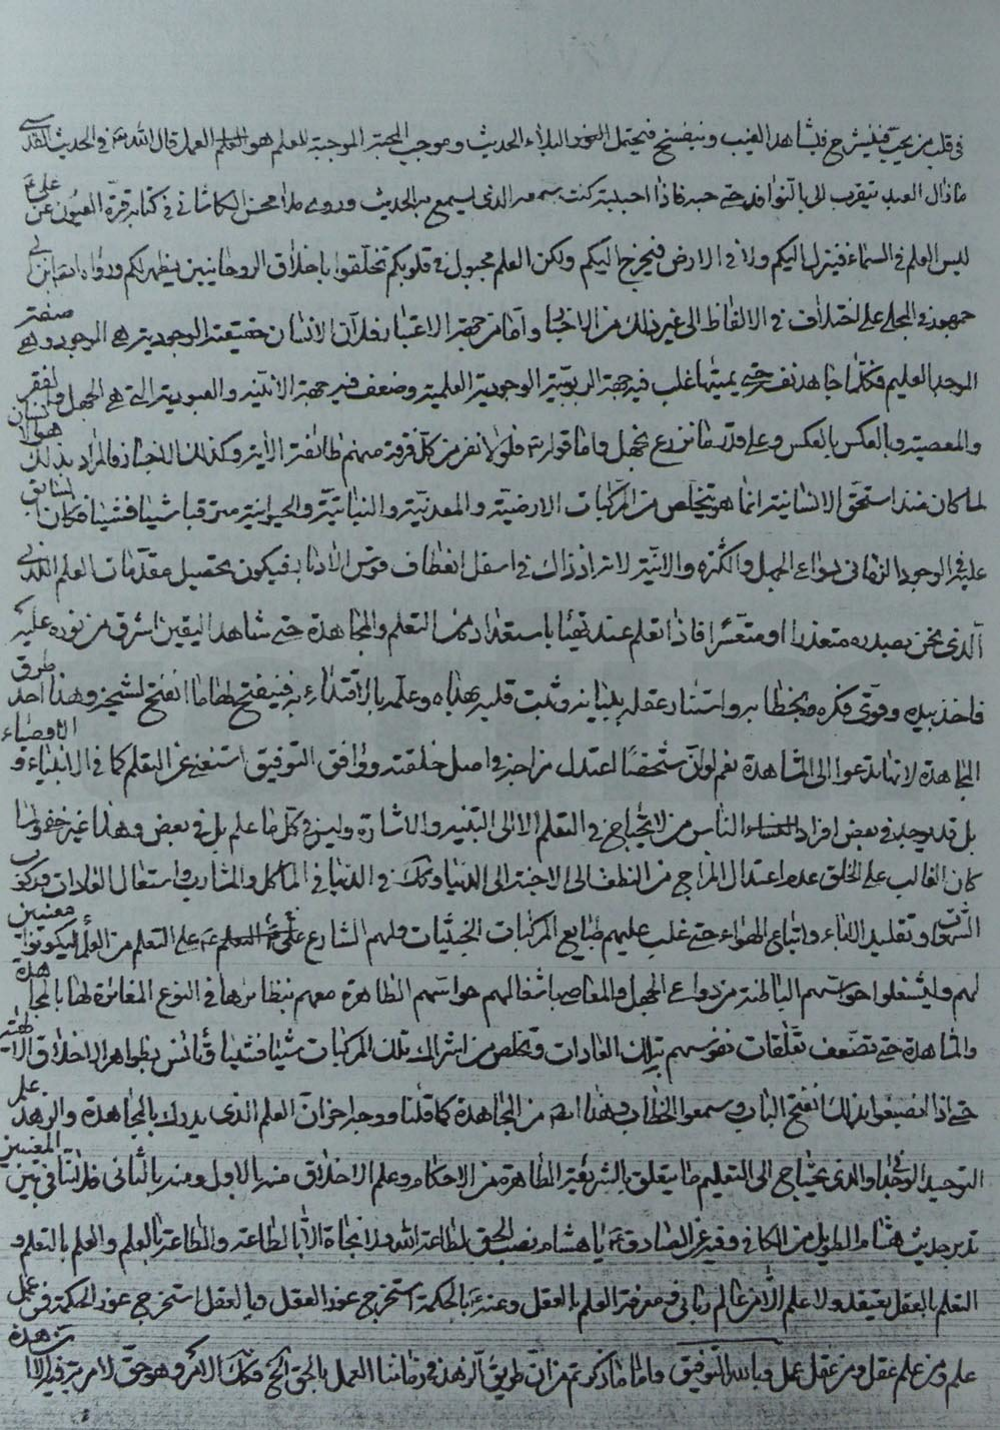 في قلب من يحب فينشرح فيشاهد الغيب وينفسح فيحتمل البلاء الحديث وموجب المحبة الموجبة للعلم هو العمل قال الله تع في الحديث القدسي
ما زال العبد يتقرب الي بالنوافل حتى احبه فاذا احببته كنت سمعه الذي يسمع به الحديث وروى ملا محسن الكاشاني في كتابه قرة العيون عن علي ع
ليس العلم في السماء فينزل اليكم ولا في الارض فيخرج اليكم ولكن العلم مجبول في قلوبكم تخلقوا باخلاق الروحانيين يظهر لكم ورواه ابن ابي
جمهور في المجلي على اختلاف في الالفاظ الى غير ذلك من الاخبار واما من جهة الاعتبار فلان الانسان حقيقته الوجودية هي الموجود وهي صفة
الموجد العليم فكلما جاهد نفسه حتى يميتها غلب فيه جهة الربوبية الوجودية العلمية وضعف فيه جهة الانية والعبودية التي هي الجهل والفقر
والمعصية وبالعكس بالعكس وعلى قدر ما نزرع نخجل واما قوله تع فلولا نفر من كل فرقة منهم طائفة الاية وكذلك الاخبار فالمراد بذلك هو ان الانسان
لما كان مبدا استحق الانسانية انما هو تخلص من المركبات الارضية والمعدنية والنباتية والحيوانية مترقيا شيئا فشيئا فكان السابق
عليه في الوجود الزماني دواعي الجهل والكثرة والانية لانه اذ ذاك في اسفل انعطاف قوس الادبار فيكون تحصيل مقدمات العلم اللدني
الذي نحن بصدده متعذرا او متعسرا فاذا تعلم عند تهيا باستعداد من التعلم والمجاهدة حتى شاهد اليقين اشرق من نوره عليه
فاخذ بيده وقوى فكره بخطابه واستنار عقله ببيانه وثبت قلبه بهداه وعلمه بالاقتداء به فينفتح له ما انفتح لشيخه وهذا احد طرق
المجاهدة لانها تدعوا الى المشاهدة نعم لو ان شخصا اعتدل مزاجه في اصل خلقته ووافق التوفيق استغنى عن التعلم كما في الانبياء والاوصياء
بل قد يوجد في بعض افراد الناس من لا يحتاج في التعلم الا الى التنبيه والاشارة وليس في كل ما علم بل في بعض وهذا غير خفي ولما
كان الغالب على الخلق عدم اعتدال المزاج من النطف الى الاجنة الى الدنيا وكذلك في الدنيا في الماكل والمشارب واستعمال العادات وركوب
الشهوات وتقليد الاباء واتباع الهواء حتى غلب عليهم طبايع المركبات الخبيثات ولهم الشارع ع على التعلم من العلماء ليكونوا معينين
لهم وليشغلوا حواسهم الباطنة من دواعي الجهل والمعاصي باشغالهم حواسهم الظاهرة معهم بنظائرها في النوع المغائرة لها بالمجاهدة
والمشاهدة حتى تضعف تعلقات نفوسهم بتلك العادات وتخلص من اشراك تلك المركبات شيئا فشيئا وتأنس بظواهر الاخلاق الالهية
حتى اذا انصبغوا بذلك انفتح الباب وسمعوا الخطاب وهذا ايضا من المجاهدة كما قلنا ووجه اخر ان العلم الذي يدرك بالمجاهدة والزهد علم
التوحيد الوجداني والذي يحتاج الى التعليم ما يتعلق بالشريعة الظاهرة من الاحكام وعلم الاخلاق منه بالاول ومنه بالثاني فلا تنافي بين المعنيين
تدبر حديث هشام الطويل من الكافي وفيه عن الصادق ع يا هشام نصب الحق لطاعة الله ولا نجاة الا بالطاعة والطاعة بالعلم والعلم بالتعلم و
التعلم بالعقل يعتقد ولا علم الا من عالم رباني ومعرفة العلم بالعقل وعنه ع بالحكمة استخرج غور العقل وبالعقل استخرج غور الحكمة فمن عمل
علم ومن علم عقل ومن عقل عمل وبالله التوفيق واما ما ذكرتم من ان طريق الزهد في زماننا العمل بالحق الخ فكذلك الامر وهو حق لا مرية فيه الا ان هذه